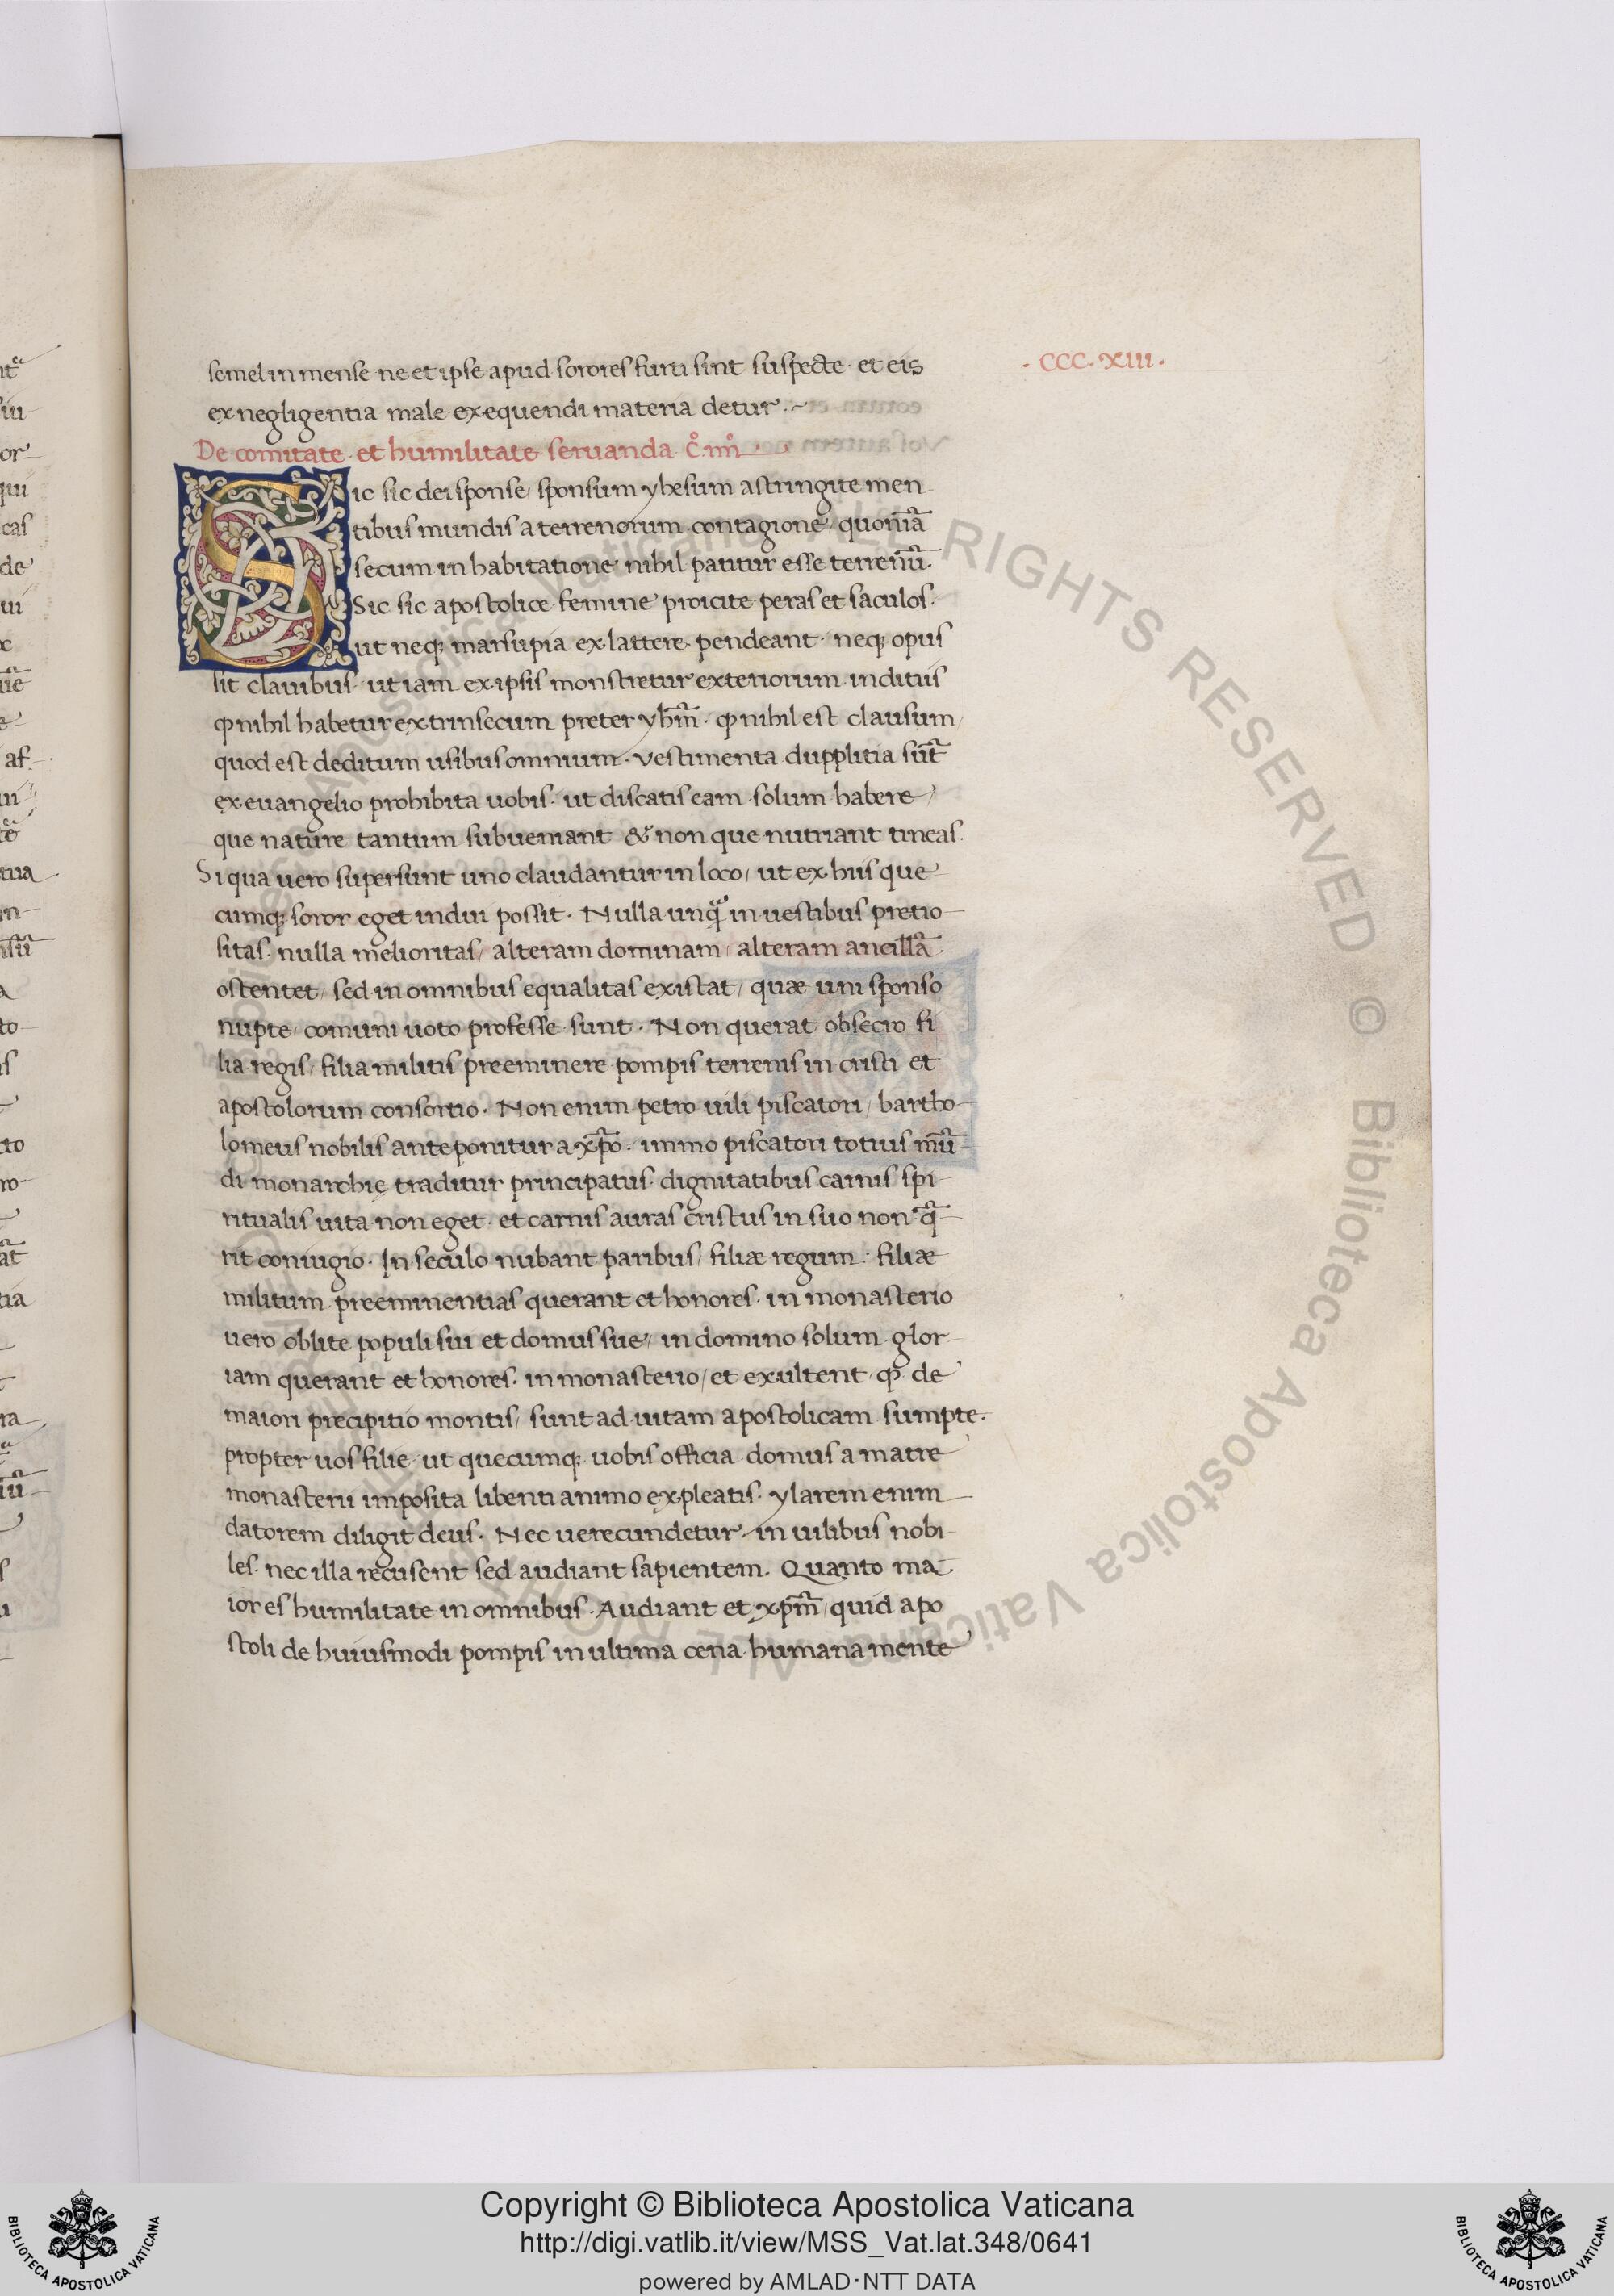 semel in mense ne et ipse apud sorores furti sint suspecte · et eis
· CCC · XIII ·
ex negligentia male exequendi materia detur · ~
De comitate et humilitate seruanda c̊ · iiii̊
Sic sic dei sponse / sponsum yhesum astringite men
tibus mundis a terrenorum contagione / quoniā
secum in habitatione nihil patitur esse terrenū.
Sic sic apostolice femine proicite peras et saculos ·
ut neq; marsupia ex lattere pendeant · neq; opus
sit clauibus · ut iam ex ipsis monstretur exteriorum inditiis
ꝙ nihil habetur extrinsecum preter yhm̄ · ꝙ nihil est clausum /
quod est deditum usibus omnium · vestimenta dupplitia sūt
ex euangelio prohibita uobis · ut discatis eam solum habere /
que nature tantum subueniant & non que nutriant tineas ·
Si qua uero supersunt uno claudantur in loco / ut ex hiis que
cumq; soror eget indui possit · Nulla unq̄ in uestibus pretio-
sitas · nulla melioritas / alteram dominam / alteram ancillā
ostentet / sed in omnibus equalitas existat / quæ uni sponso
nupte / comuni uoto professe sunt · Non querat obsecro fi
lia regis / filia militis preeminere pompis terrenis in cristi et
apostolorum consortio · Non enim petro uili piscatori / bartho-
lomeus nobilis anteponitur a xp̄o · immo piscatori totius mū
di monarchię traditur principatus · dignitatibus carnis spi-
ritualis uita non eget · et carnis auras cristus in suo non q̄-
rit coniugio · In seculo nubant paribus / filiæ regum : filiæ
militum preeminentias querant et honores · in monasterio
uero oblite populi sui et domus sue / in domino solum glor-
iam querant et honores · in monasterio / et exultent ꝙ de
maiori precipitio montis / sunt ad uitam apostolicam sumpte ·
propter uos filie · ut quecumq; uobis officia domus a matre
monasterii imposita libenti animo expleatis · ylarem enim
datorem diligit deus · Nec uerecundetur in uilibus nobi-
les · nec illa recusent sed audiant sapientem · Quanto ma
iores humilitate in omnibus · Audiant et xpm̄ / quid apo
stoli de huiusmodi pompis in ultima cena humana mente
ALL RIGHTS RESERVED © Biblioteca Apostolica Vaticana
Copyright © Biblioteca Apostolica Vaticana
http://digi.vatlib.it/view/MSS_Vat.lat.348/0641
powered by AMLAD·NTT DATA
BIBLIOTECA APOSTOLICA VATICANA
BIBLIOTECA APOSTOLICA VATICANA